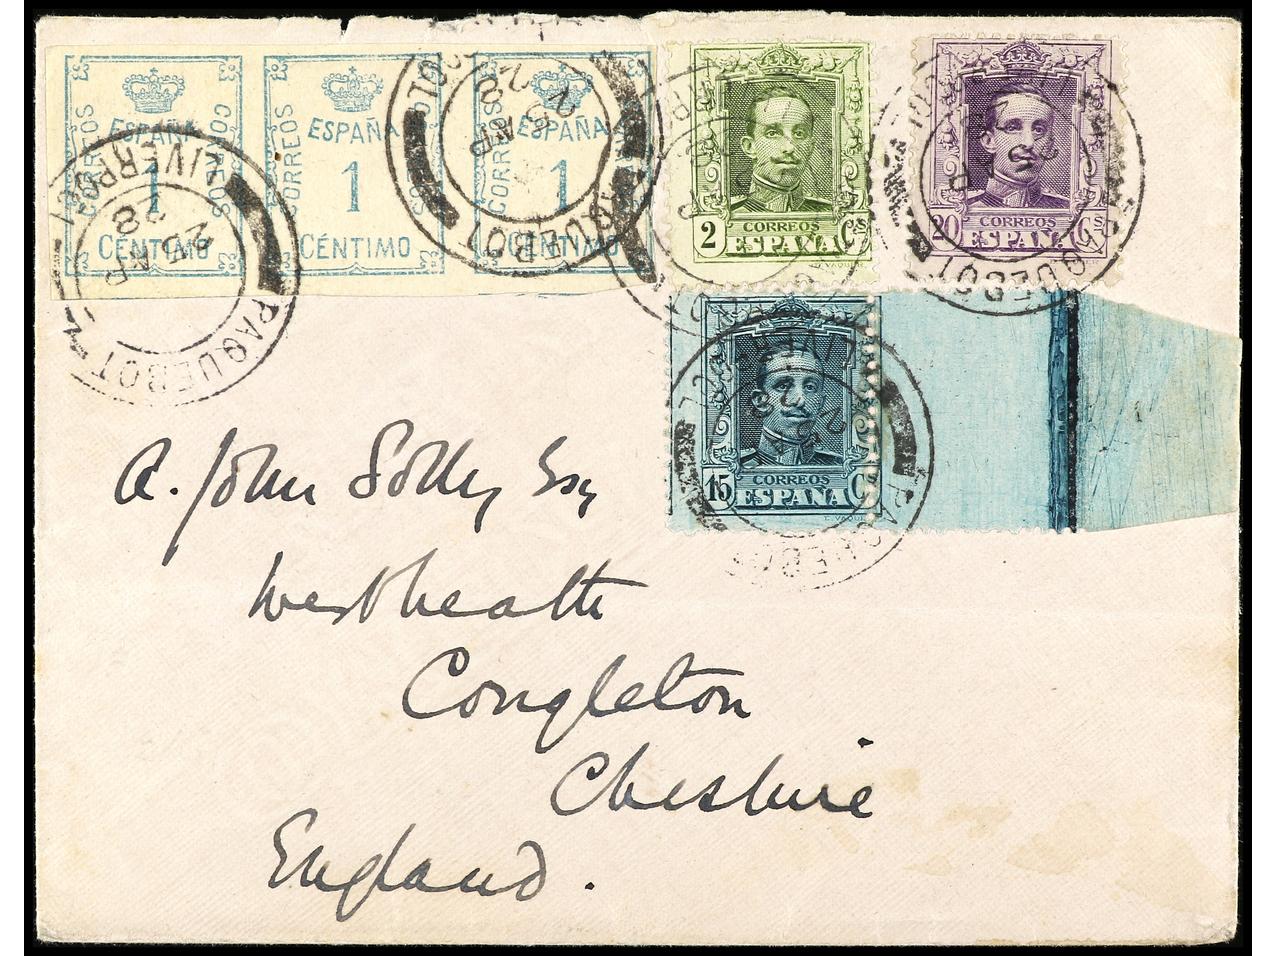 CORREOS ESPAÑA CORREOS
1
CÉNTIMO
CORREOS ESPAÑA
1
CÉNTIMO
CORREOS ESPAÑA
1
CÉNTIMO
2 CORREOS Cs
ESPAÑA
20 CORREOS Cs
ESPAÑA
15 CORREOS Cs
ESPAÑA
LIVERPOOL
25 AP
28
PAQUEBOT
A. John Solly Esq
Westheath
Congleton
Cheshire
England.